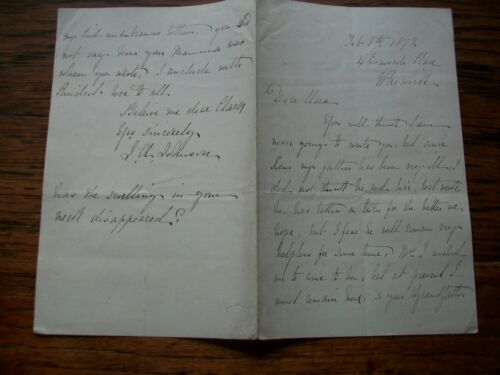 my kind remembrances to them, you did
not say how your Mamma was
when you wrote, I include with
kindest love to all.
Believe me dear Clara
Yrs sincerely
J. A. Johnson
Has the swelling in your
neck disappeared?
Feb 8th 1872
4 Place
Warwick
Dear
You will think I am
never going to write you, but since
my father has been very ill I
did not think he would live, last week
he has taken a turn for the better we
hope, but I fear he will remain very
helpless for some time, Mr. J. wished
me to come to him, but at present I
must remain here, so your Grandfather